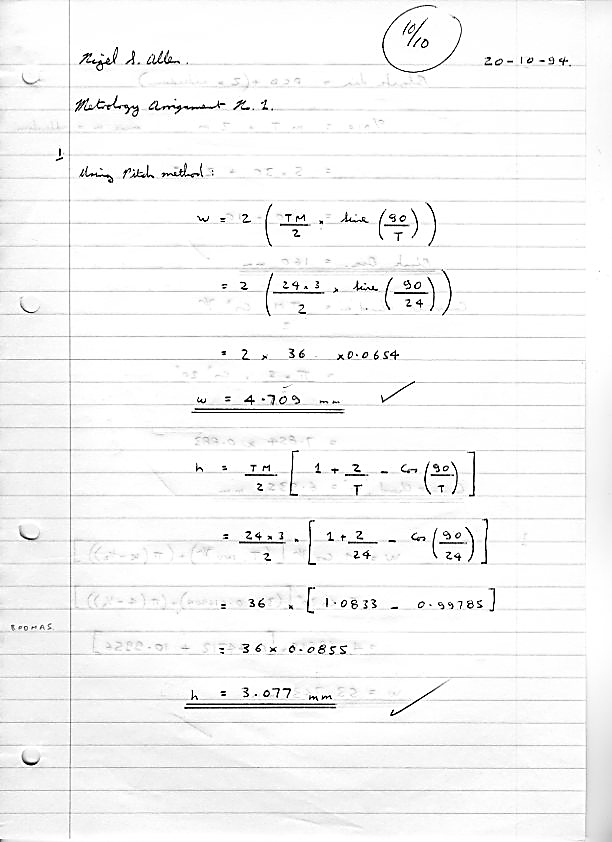 10/10
Nigel S. Allen.
20-10-94.
Metrology Assignment No. 1.
1
Using Pitch method:
w = 2 ( TM/2 × Sine ( 90/T ) )
= 2 ( 24×3/2 × Sine ( 90/24 ) )
= 2 × 36 × 0.0654
w = 4.709 mm ✓
h = TM/2 [ 1 + 2/T - Cos ( 90/T ) ]
= 24×3/2 × [ 1 + 2/24 - Cos ( 90/24 ) ]
= 36 × [ 1.0833 - 0.99785 ]
BODMAS.
= 36 × 0.0855
h = 3.077 mm ✓